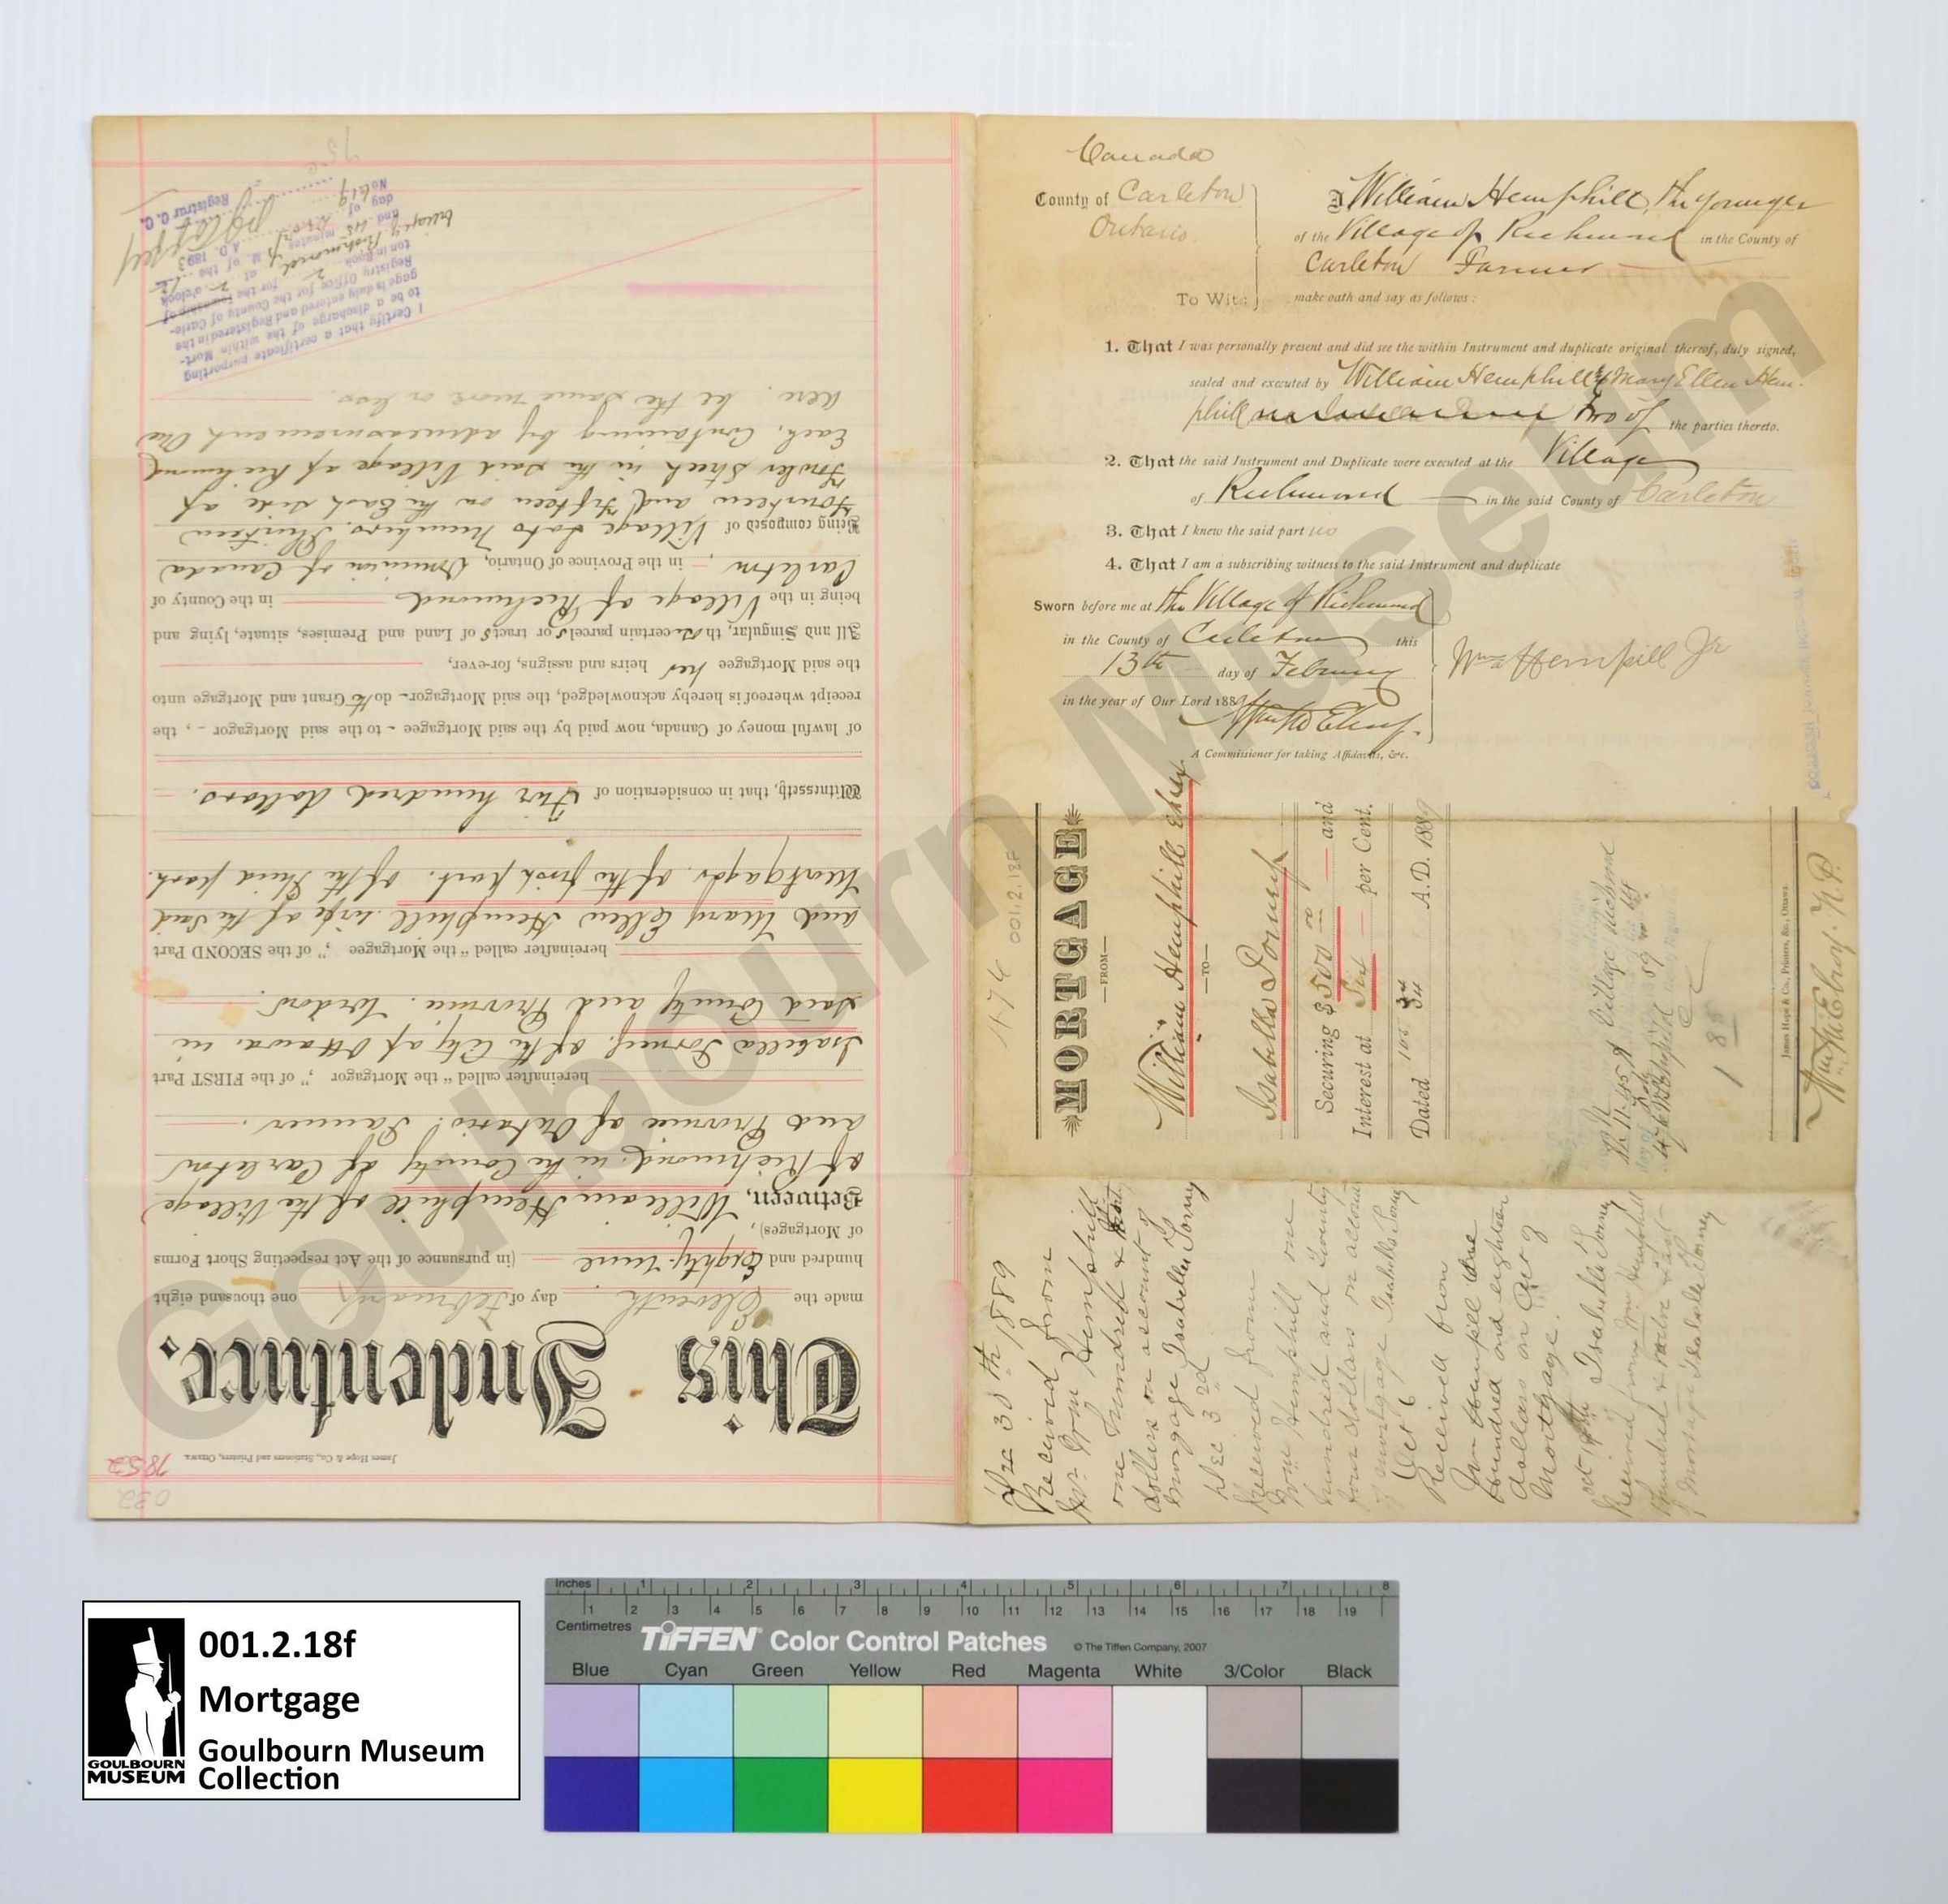 James Hope & Co., Stationers and Printers, Ottawa.
032
7852
This Indenture.
made the Eleventh day of February one thousand eight
hundred and Eighty-nine (in pursuance of the Act respecting Short Forms
of Mortgages),
Between, William Hemphill of the Village
of Richmond, in the County of Carleton
and Province of Ontario. Farmer.
hereinafter called "the Mortgagor ", of the FIRST Part
Isabella Torney, of the City of Ottawa, in
said County and Province.
hereinafter called "the Mortgagee ", of the SECOND Part
and Mary Ellen Hemphill wife of the said
Mortgagor of the first part. of the Third part.
Witnesseth, that in consideration of Five hundred dollars.
of lawful money of Canada, now paid by the said Mortgagee - to the said Mortgagor - , the
receipt whereof is hereby acknowledged, the said Mortgagor - doth Grant and Mortgage unto
the said Mortgagee her heirs and assigns, for-ever,
All and Singular, those certain parcels or tracts of Land and Premises, situate, lying and
being in the Village of Richmond in the County of
Carleton, in the Province of Ontario, Dominion of Canada
Being composed of Village Lots numbers Thirteen
Fourteen and Fifteen on the East side of
Fowler Street in the said Village of Richmond
Each, Containing by admeasurement One
Acre. be the same more or less.
I Certify that a certificate purporting
to be a discharge of the within Mort-
gage is duly entered and Registered in the
Registry Office for the County of Carle-
ton in Book for the Township of
Richmond at o'clock
and 45 minutes M. of the
day of A.D. 1893
No 619
Registrar C. C.
75c
Canada
County of Carleton
Ontario.
To Wit:
I William Hemphill, the younger
of the Village of Richmond in the County of
Carleton Farmer
make oath and say as follows:
1. That I was personally present and did see the within Instrument and duplicate original thereof, duly signed,
sealed and executed by William Hemphill & Mary Ellen Hem-
phill two of the parties thereto.
2. That the said Instrument and Duplicate were executed at the Village
of Richmond in the said County of Carleton
3. That I knew the said part ies
4. That I am a subscribing witness to the said Instrument and duplicate
Sworn before me at the Village of Richmond
in the County of Carleton this
13th day of February
in the year of Our Lord 1889
Wm Hempill Jr
A Commissioner for taking Affidavits, &c.
001.2.18F
MORTGAGE
—FROM—
William Hemphill
—TO—
Isabella Torney
Securing $500 00 and
Interest at Six per Cent.
Dated A.D. 1889
Village
James Hope & Co., Printers, &c., Ottawa.
30th 1889
Received from
Wm Hemphill
one hundred &
dollars on account of
morgage Isabella Torney
Dec 3rd
Received from
Wm Hemphill one
hundred and twenty
four dollars on account
of mortgage Isabella Torney
Oct 6
Received from
Wm Hempill One
Hundred and eighteen
dollars on act of
Mortgage.
Isabella Torney
Oct
Received from Wm Hemphill
Hundred &
of Mortgage Isabella Torney
Goulbourn Museum
001.2.18f
Mortgage
Goulbourn Museum
Collection
GOULBOURN
MUSEUM
Inches 1 2 3 4 5 6 7 8
Centimetres 1 2 3 4 5 6 7 8 9 10 11 12 13 14 15 16 17 18 19
TIFFEN Color Control Patches © The Tiffen Company, 2007
Blue Cyan Green Yellow Red Magenta White 3/Color Black